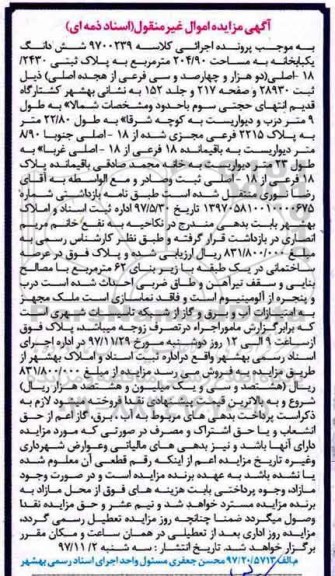 آگهی مزایده اموال غیر منقول(اسناد ذمه ای)
به موجب پرونده اجرائی کلاسه ۹۷۰۰۲۳۹ شش دانگ
یکبابخانه به مساحت ۲۰۴/۹۰ مترمربع به پلاک ثبتی ۲۴۳۰/
۱۸ -اصلی(دو هزار و چهارصد و سی فرعی از هجده اصلی) ذیل
ثبت ۲۸۹۳۰ صفحه ۲۱۷ و جلد ۱۵۲ به نشانی بهشهر کشتارگاه
قدیم انتهای حجتی سوم باحدود ومشخصات شمالا» به طول
۹ متر درب و دیواریست به کوچه شرقا» به طول ۲۲/۸۰ متر
به پلاک ۲۲۱۵ فرعی مجزی شده از ۱۸ - اصلی جنوبا ۸/۹۰
متر دیواریست به باقیمانده ۱۸ فرعی از ۱۸ - اصلی غربا» به
طول ۲۳ متر دیواریست به خانه محمد صادقی باقیمانده پلاک
۱۸ فرعی از ۱۸ - اصلی ثبت وصادر و مع الواسطه به آقای
رضا نوری منتقل شده است طبق نامه بازداشتی شماره
۱۳۹۷۰۵۸۱۰۰۱۰۰۰۰۶۷۵ تاریخ ۹۷/۵/۳۰ اداره ثبت اسناد و املاک
بهشهر بابت بدهی مندرج در نکاحیه به نفع خانم مریم
انصاری در بازداشت قرار گرفته و طبق نظر کارشناس رسمی به
مبلغ ۸۳۱/۸۰۰/۰۰۰ ریال ارزیابی شده و پلاک فوق در عرصه
ساختمانی در یک طبقه با زیر بنای ۶۲ مترمربع با مصالح
بنایی و سقف تیرآهن و طاق ضربی احداث شده است درب
و پنجره از آلومینیوم است و فاقد نماسازی است ملک مجهز
به امتیازات آب و برق و گاز از شبکه تاسیسات شهری است
که برابرگزارش ماموراجراء درتصرف زوجه میباشد. پلاک فوق
ازساعت ۹ الی ۱۲ روز دوشنبه مورخ ۹۷/۱۱/۲۹ در اداره اجرای
اسناد رسمی بهشهر واقع دراداره ثبت اسناد و املاک بهشهر از
طریق مزایده به فروش می رسد مزایده از مبلغ ۸۳۱/۸۰۰/۰۰۰
ریال (هشتصد و سی و یک میلیون و هشتصد هزار ریال)
شروع و به بالاترین قیمت پیشنهادی نقدا فروخته میشود لازم به
ذکراست پرداخت بدهی های مربوط به آب، برق، گاز اعم از حق
انشعاب و یا حق اشتراک و مصرف در صورتی که مورد مزایده
دارای آنها باشد و نیز بدهی های مالیاتی وعوارض شهرداری
وغیره تاریخ مزایده اعم از اینکه رقم قطعی آن معلوم شده
یا نشده باشد به عهده برنده مزایده است و در صورت وجود
مازاد، وجوه پرداختی بابت هزینه های فوق از محل مازاد به
برنده مزایده مسترد خواهد شد و نیم عشر و حق مزایده نقدا
وصول میگردد ضمنا چنانچه روز مزایده تعطیل رسمی گردد،
مزایده روز اداری بعد از تعطیلی در همان ساعت و مکان مقرر
برگزار خواهد شد. تاریخ انتشار : سه شنبه ۹۷/۱۱/۲
م.الف ۹۷/۲۰/۵۷۱۳ محسن جعفری مسئول واحد اجرای اسناد رسمی بهشهر